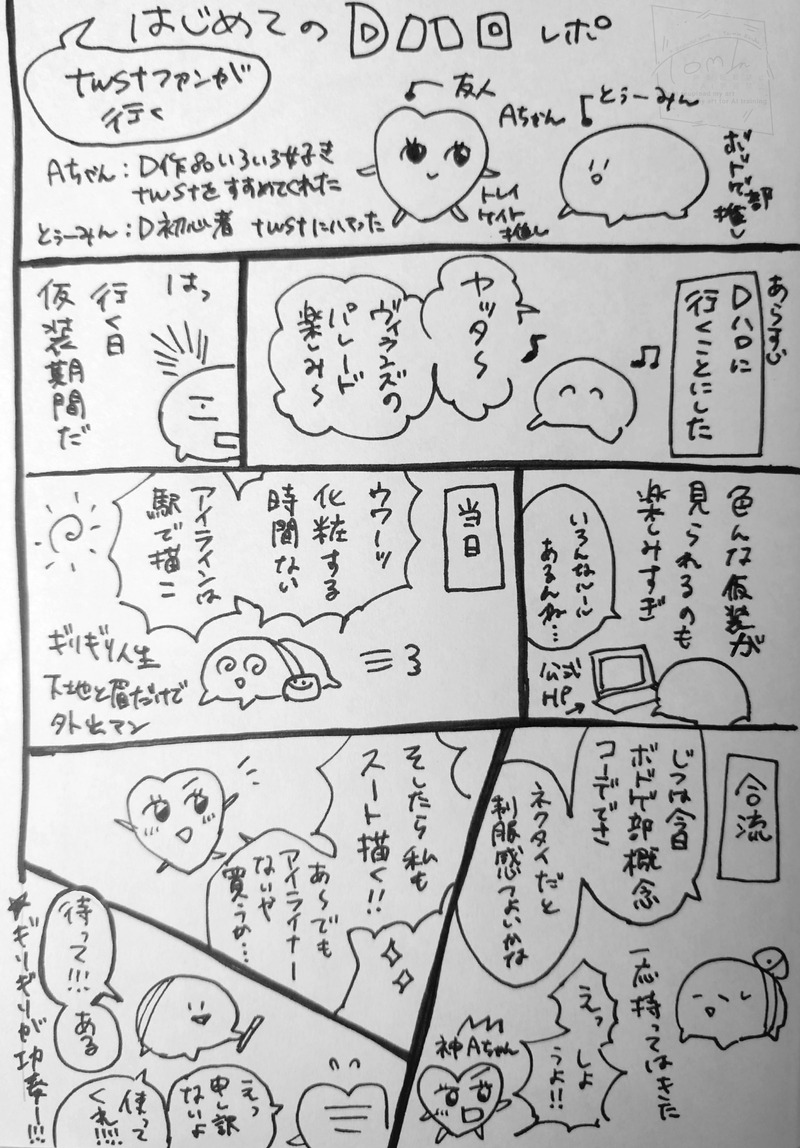 はじめてのD□□□レポ
twstファンが
行く
友人
Aちゃん
とぅーみん
Aちゃん:D作品いろいろ好き
twstをすすめてくれた
とぅーみん:D初心者 twstにハマった
トレイ
ケイト
推し
ボドゲ部
推し
あらすじ
Dハロに
行くことにした
ヤッタ〜
ヴィランズの
パレード
楽しみ〜
はっ
行く日
仮装期間だ
色んな仮装が
見られるのも
楽しみすぎ
いろんなルール
あるんね…
公式
HP
当日
ウワーッ
化粧する
時間ない
アイラインは
駅で描こ
ギリギリ人生
下地と眉だけで
外出マン
合流
じつは今日
ボドゲ部概念
コーデでさ
ネクタイだと
制服感つよいかな
一応持ってはきた
えっ
しよ
うよ!!
神Aちゃん
そしたら私も
スート描く!!
あ〜でも
アイライナー
ないや
買うか…
待って!!!
ある
★ギリギリが功奏ー!!!
えっ
申し訳
ないよ
使って
くれ!!!!